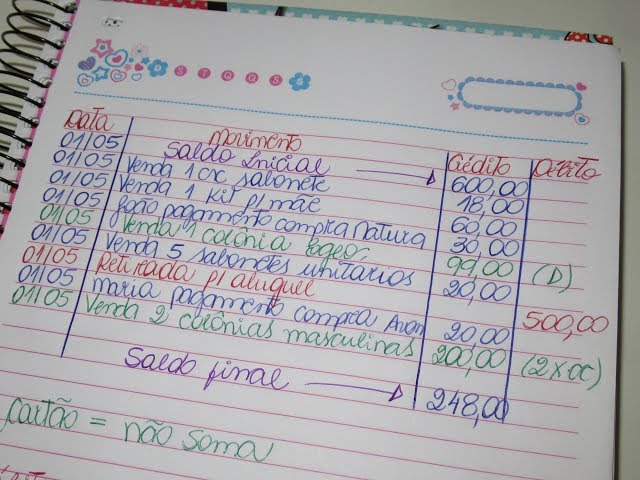 D S T Q Q S S
Data Movimento Crédito Débito
01/05 Saldo Inicial 600,00
01/05 Venda 1 cx sabonete 18,00
01/05 Venda 1 Kit p/ mãe 60,00
01/05 João pagamento compra Natura 30,00
01/05 Venda 1 colônia 99,00 (D)
01/05 Venda 5 sabonetes unitarios 20,00
01/05 Retirada p/ aluguel 500,00
01/05 Maria pagamento compra Avon 20,00
01/05 Venda 2 colônias masculinas 200,00 (2x cc)
Saldo final 248,00
Cartão = não soma